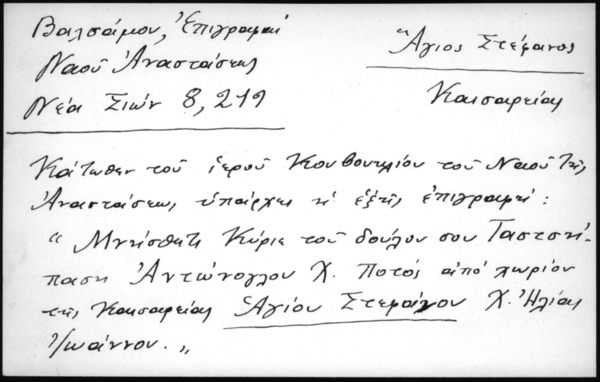 Βαλσάμου, Ἐπιγραφαί
Ναοῦ Ἀναστάσεως
Νέα Σιών 8, 219
Ἅγιος Στέφανος
Καισαρείας
Κάτωθεν τοῦ ἱεροῦ Κουβουκλίου τοῦ Ναοῦ τῆς
Ἀναστάσεως ὑπάρχει ἡ ἑξῆς ἐπιγραφή :
“ Μνήσθητι Κύριε τοῦ δούλου σου
πασῆ Ἀντώνογλου Χ. Ποτός ἀπό χωρίον
τῆς Καισαρείας Ἁγίου Στεφάνου Χ. Ἠλίας
Ἰωάννου. „